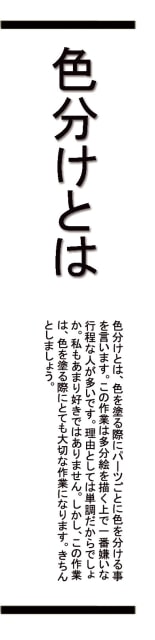 色分けとは
色分けとは、色を塗る際にパーツごとに色を分ける事
を言います。この作業は多分絵を描く上で一番嫌いな
行程な人が多いです。理由としては単調だからでしょ
か。私もあまり好きではありません。しかし、この作業
は、色を塗る際にとても大切な作業になります。きちん
としましょう。